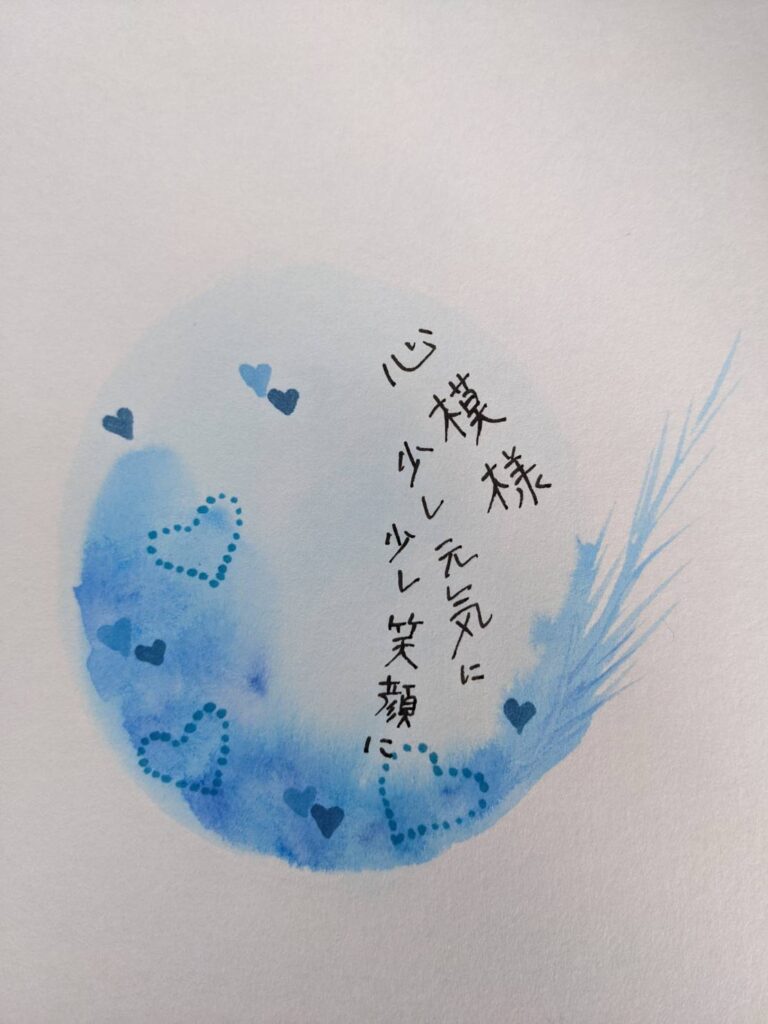 心模様
少し元気に
少し笑顔に